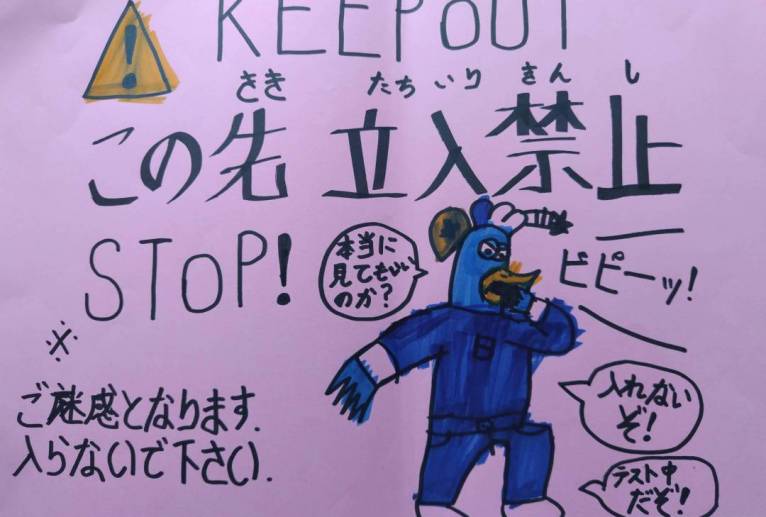 !
KEEPOUT
さき たちいりきんし
この先 立入禁止
STOP!
本当に
見てもいい
のか?
ビピーッ!
※
ご迷惑となります.
入らないで下さい.
入れない
ぞ!
テスト中
だぞ!